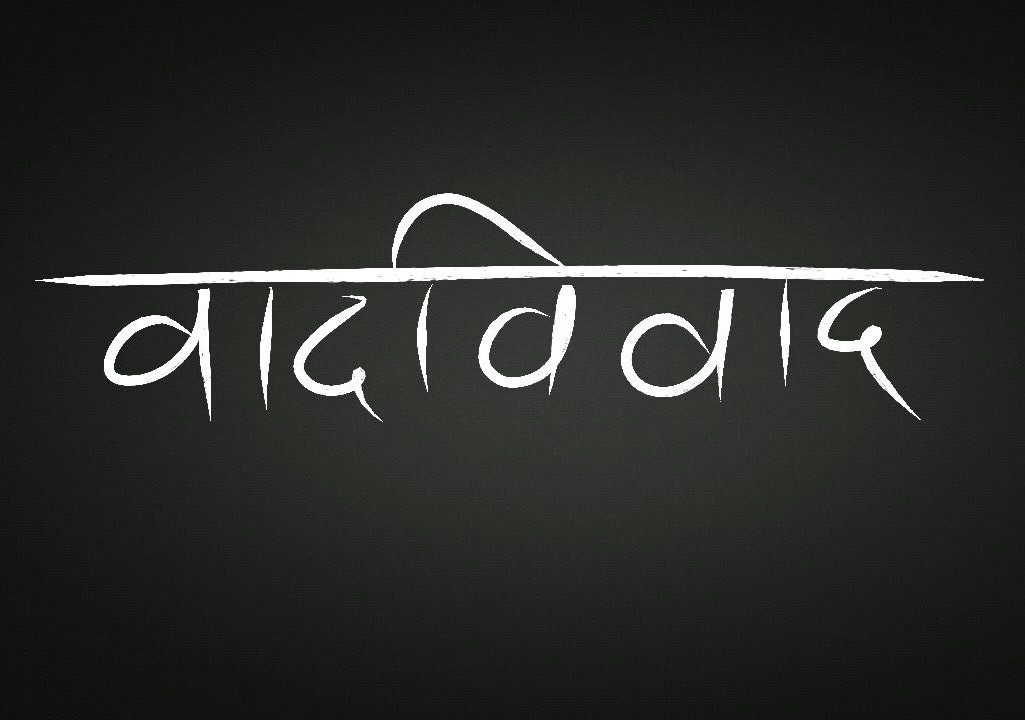 वादविवाद